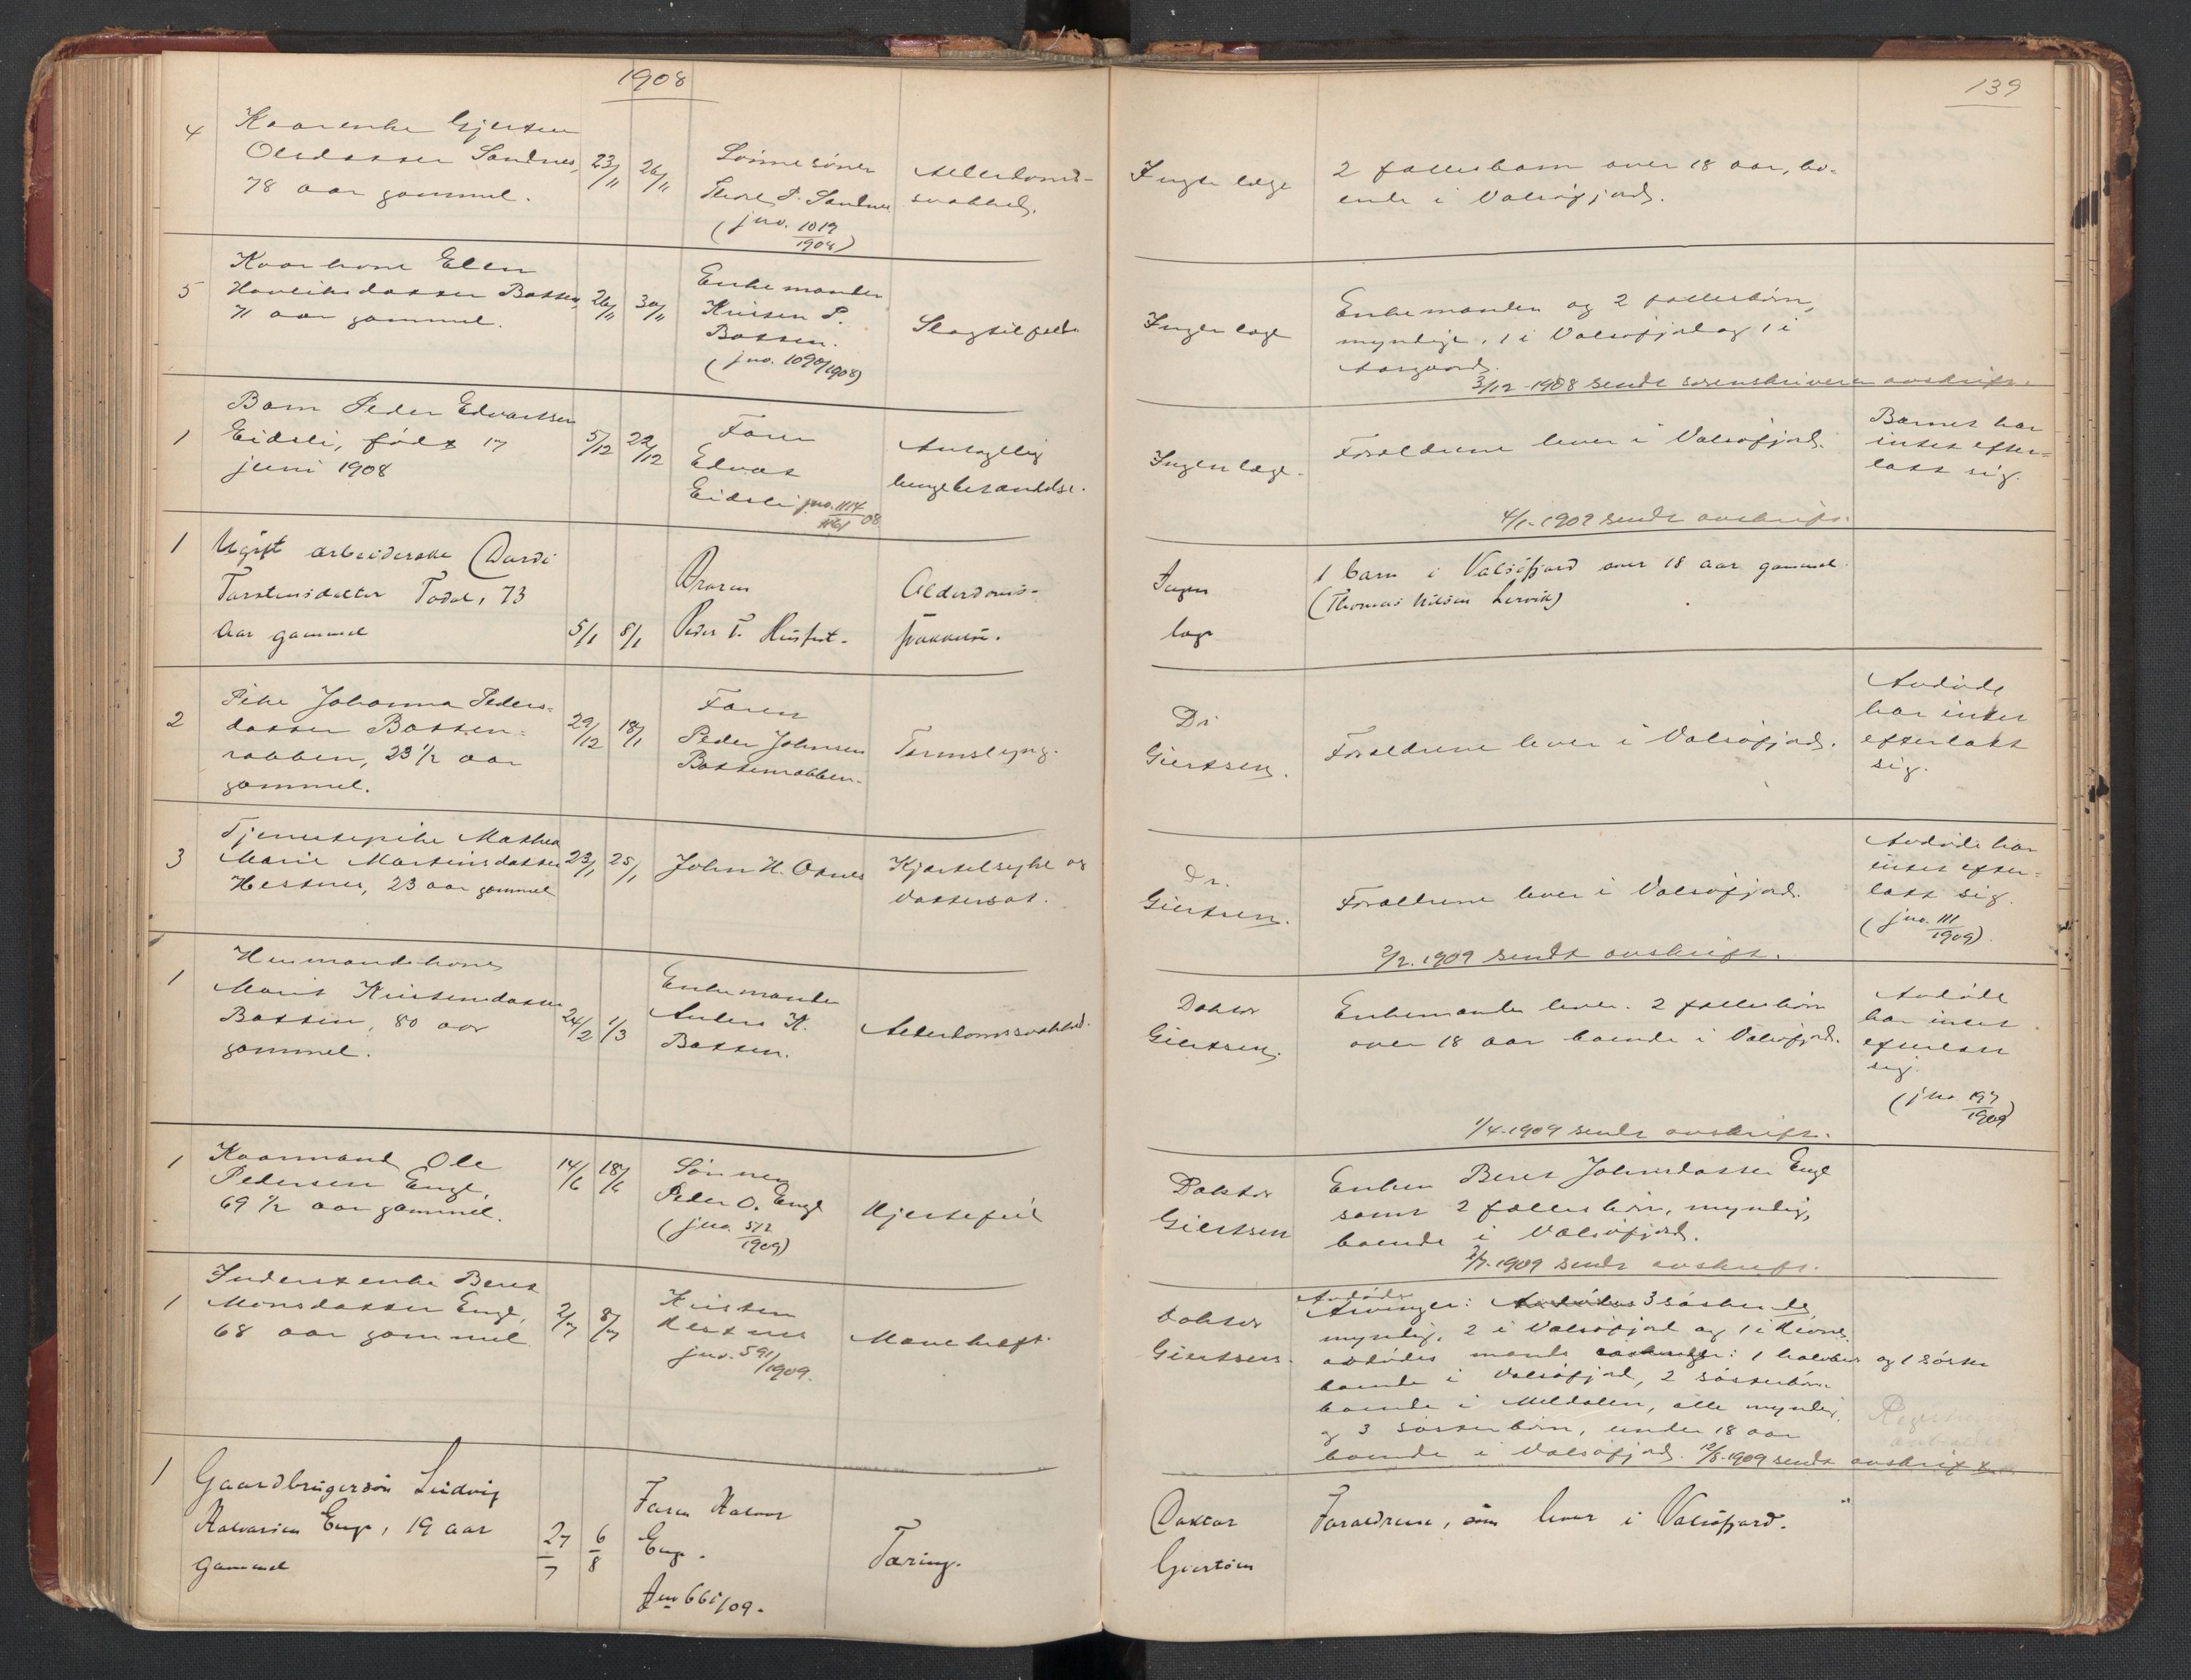 1908
139
4
Kaarenke Gjertru
Olsdatter Sandnes,
78 aar gammel.
23/11
26/11
Sønnesønen
Tore P. Sandnes
(jno. 1019/1908)
Alderdoms-
svakhed.
Ingen læge
2 fællesbarn over 18 aar, bo-
ende i Valsøfjord.
5
Kaarkone Ellen
Haveliksdatter Botten,
71 aar gammel.
26/11
30/11
Enkemanden
Kristen P.
Botten.
(jno. 1090/1908)
Slagtilfelde
Ingen læge
Enkemanden og 2 fællesbørn,
myndige, 1 i Valsøfjord og 1 i
Aasgaard.
3/12-1908 sendt sorenskriveren avskrift.
1
Barn Peder Edvartsen
Eidsli, født 17
juni 1908
5/12
22/12
Faren
Edvat
Eidsli jno. 1114/1161 08
Antagelig
lungebetændelse.
Ingen læge.
Forældrene lever i Valsøfjord.
Barnet har
intet efter-
latt sig.
4/1-1909 sendt avskrift.
1
Ugift arbeiderske Dardi
Torstensdatter Todal, 73
aar gammel
5/1
8/1
Broren
Peder T. Husfest.
Alderdoms-
svækkelse.
Ingen
læge
1 barn i Valsøfjord over 18 aar gammel.
(Thomas Nilsen Lervik)
2
Pike Johanna Peders-
datter Botten-
rabben, 23 1/2 aar
gammel.
29/12
18/1
Faren
Peder Johnsen
Bottenrabben.
Tarmslyng.
Dr
Giertsen.
Forældrene lever i Valsøfjord.
Avdøde
har intet
efterlatt
sig.
3
Tjenestepike Mathea
Marie Martinsdatter
Hestnes, 23 aar gammel
23/1
25/1
John H. Oxnes
Kjertelsyke og
vattersot.
Dr.
Giertsen.
Forældrene lever i Valsøfjord.
Avdøde har
intet efter-
latt sig.
(jno. 111/1909).
2/2. 1909 sendt avskrift.
1
Husmandskone
Marit Kristensdatter
Botten, 80 aar
gammel.
24/2
1/3
Enkemanden
Anders K.
Botten.
Alderdomssvakhed.
Doktor
Giertsen.
Enkemanden lever. 2 fællesbørn
over 18 aar boende i Valsøfjord.
Avdøde
har intet
efterlatt
sig.
(jno 197/1909)
1/4-1909 sendt avskrift.
1
Kaarmand Ole
Pedersen Enge,
69 1/2 aar gammel.
14/6
18/6
Sønnen
Peder O. Enge
(jno. 512/1909)
Hjertefeil
Doktor
Giertsen
Enken Beret Johnsdatter Enge
samt 2 fællesbørn, myndig,
boende i Valsøfjord.
2/7-1909 sendt avskrift.
1
Inderstenke Beret
Monsdatter Enge,
68 aar gammel
2/7
8/7
Kristen
Hestnes
jno. 591/1909.
Mavekræft.
Doktor
Giertsen.
Avdødes
Arvinger: Avdødes 3 søskende,
myndig, 2 i Valsøfjord og 1 i
avdødes mands: 1 halvbror og 1 søster
boende i Valsøfjord, 2 søsterbørn
boende i Meldalen, alle myndig,
og 3 søsterbørn, under 18 aar
boende i Valsøfjord. 12/8-1909 sendt avskrift
1
Gaardbrugersøn Ludvig
Halvorsen Enge, 19 aar
gammel
27/7
6/8
Faren Halvor
Enge.
Jno 661/09.
Tæring.
Doktor
Giertsen
Forældrene, som lever i Valsøfjord.